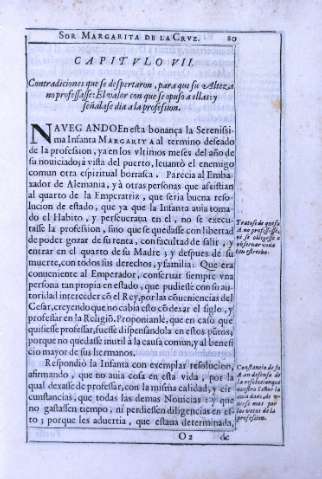 SOR MARGARITA DE LA CRVZ. 80
CAPITVLO VII.
Contradiciones que se despertaron, para que su Alteza
no professasse: El valor con que se opuso a ellas: y
señalase dia a la profession.
NAVEGANDO En esta bonança la Serenissi-
ma Infanta MARGARITA al termino deseado
de la profession, ya en los vltimos meses del año de
su nouiciado; a vista del puerto, leuantò el enemigo
comun otra espiritual borrasca. Parecia al Emba-
xador de Alemania, y à otras personas que asistian
al quarto de la Emperatriz, que seria buena reso-
lucion de estado, que ya que la Infanta auia toma-
do el Habito, y perseueraua en el, no se execu-
tasse la profession, sino que se quedasse con libertad
de poder gozar de su renta, con facultad de salir, y
entrar en el quarto de su Madre; y despues de su
muerte, con todos sus derechos, y familia. Que era
conueniente al Emperador, conseruar siempre vna
persona tan propia en estado, que pudiesse con su au-
toridad interceder cõ el Rey, por las cõueniencias del
Cesar, creyendo que no cabia esto cõ dexar el siglo, y
professar en la Religiõ. Proponianle, que en caso que
quisiesse professar, fuesse dispensandola en estos putos,
porque no quedasse inutil à la causa comun, y al benefi
cio mayor de sus hermanos.
Respondiò la Infanta con exemplar resolucion,
afirmando, que no auia cosa en esta vida, por la
qual dexasse de professar, con la misma calidad, y cir
cunstancias, que todas las demas Nouicias: y que
no gastassen tiempo, ni perdiessen diligencias en es-
to; porque les aduertia, que estaua determinada,
O 2 de
Tratase de que su
A. no professasse,
ni se obligasse a
obseruar una
tan estrecha.
Constancia de su
A. en defensa de
la resolucion que